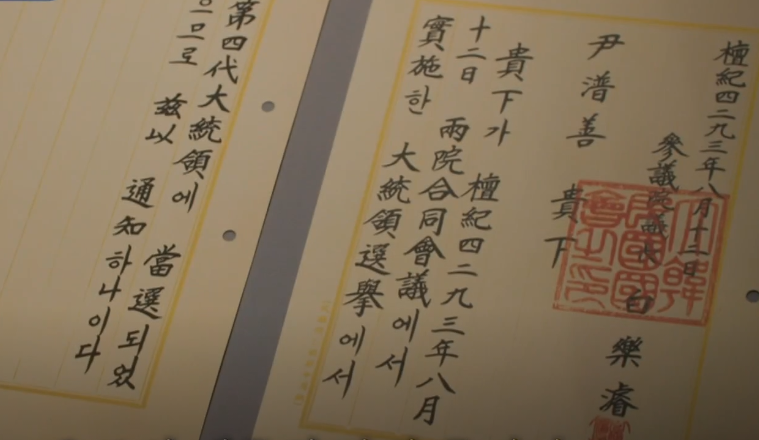 檀紀四二九三年八月十二日
參議院議長 白樂濬
尹潽善 貴下
貴下가 檀紀四二九三年八月
十二日 兩院合同會議에서
實施한 大統領選擧에서
第四代大統領에 當選되었
으므로 玆以 通知하나이다
大韓
民國國
會之印